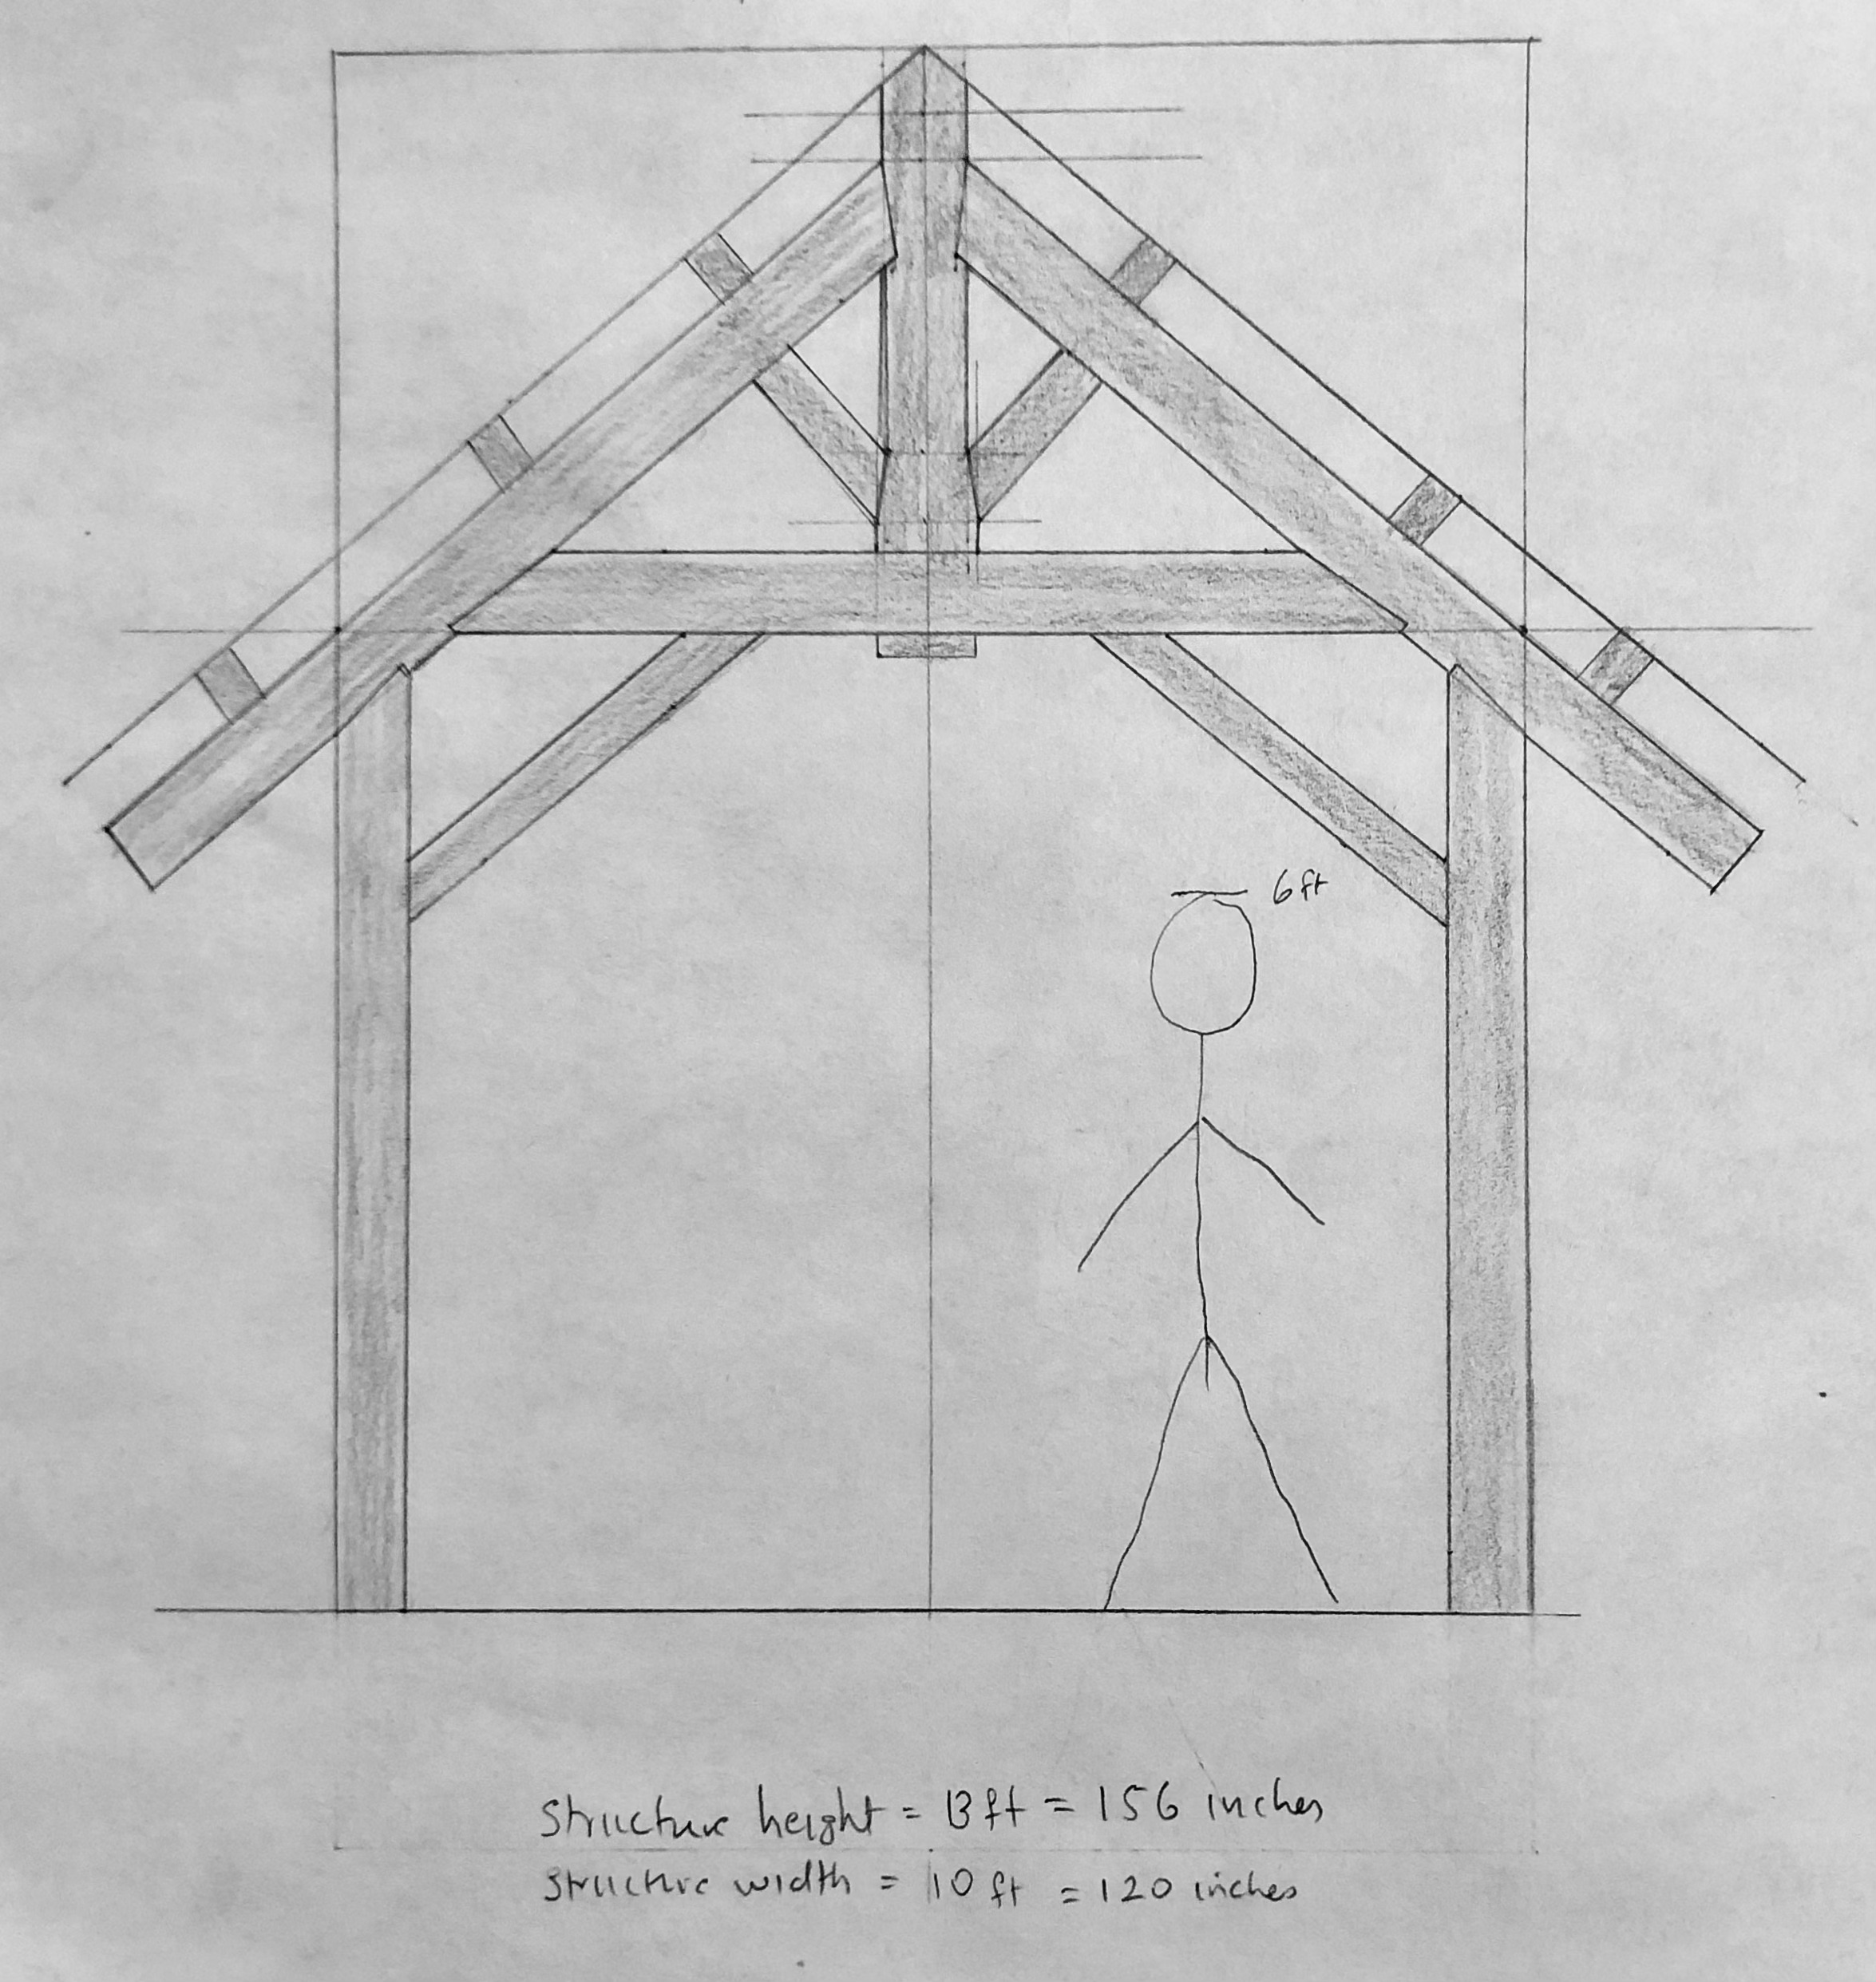 6 ft
Structure height = 13 ft = 156 inches
Structure width = 10 ft = 120 inches